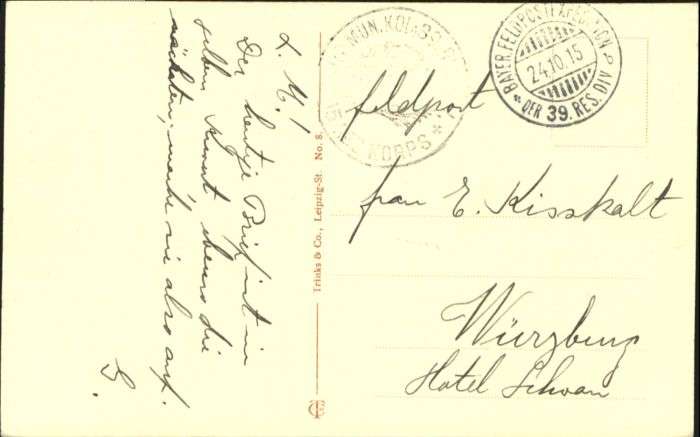 L. M.!
Der heutige Brief ist in
selben Kuvert ebenso die
nächsten, mache sie also auf.
G.
Trinks & Co., Leipzig-St. No. 8.
MÜN. KOL.
KORPS
BAYER. FELDPOSTEXPEDITION
24.10.15
DER 39. RES. DIV
Feldpost
Frau E. Kisskalt
Würzburg
Hotel Schwan